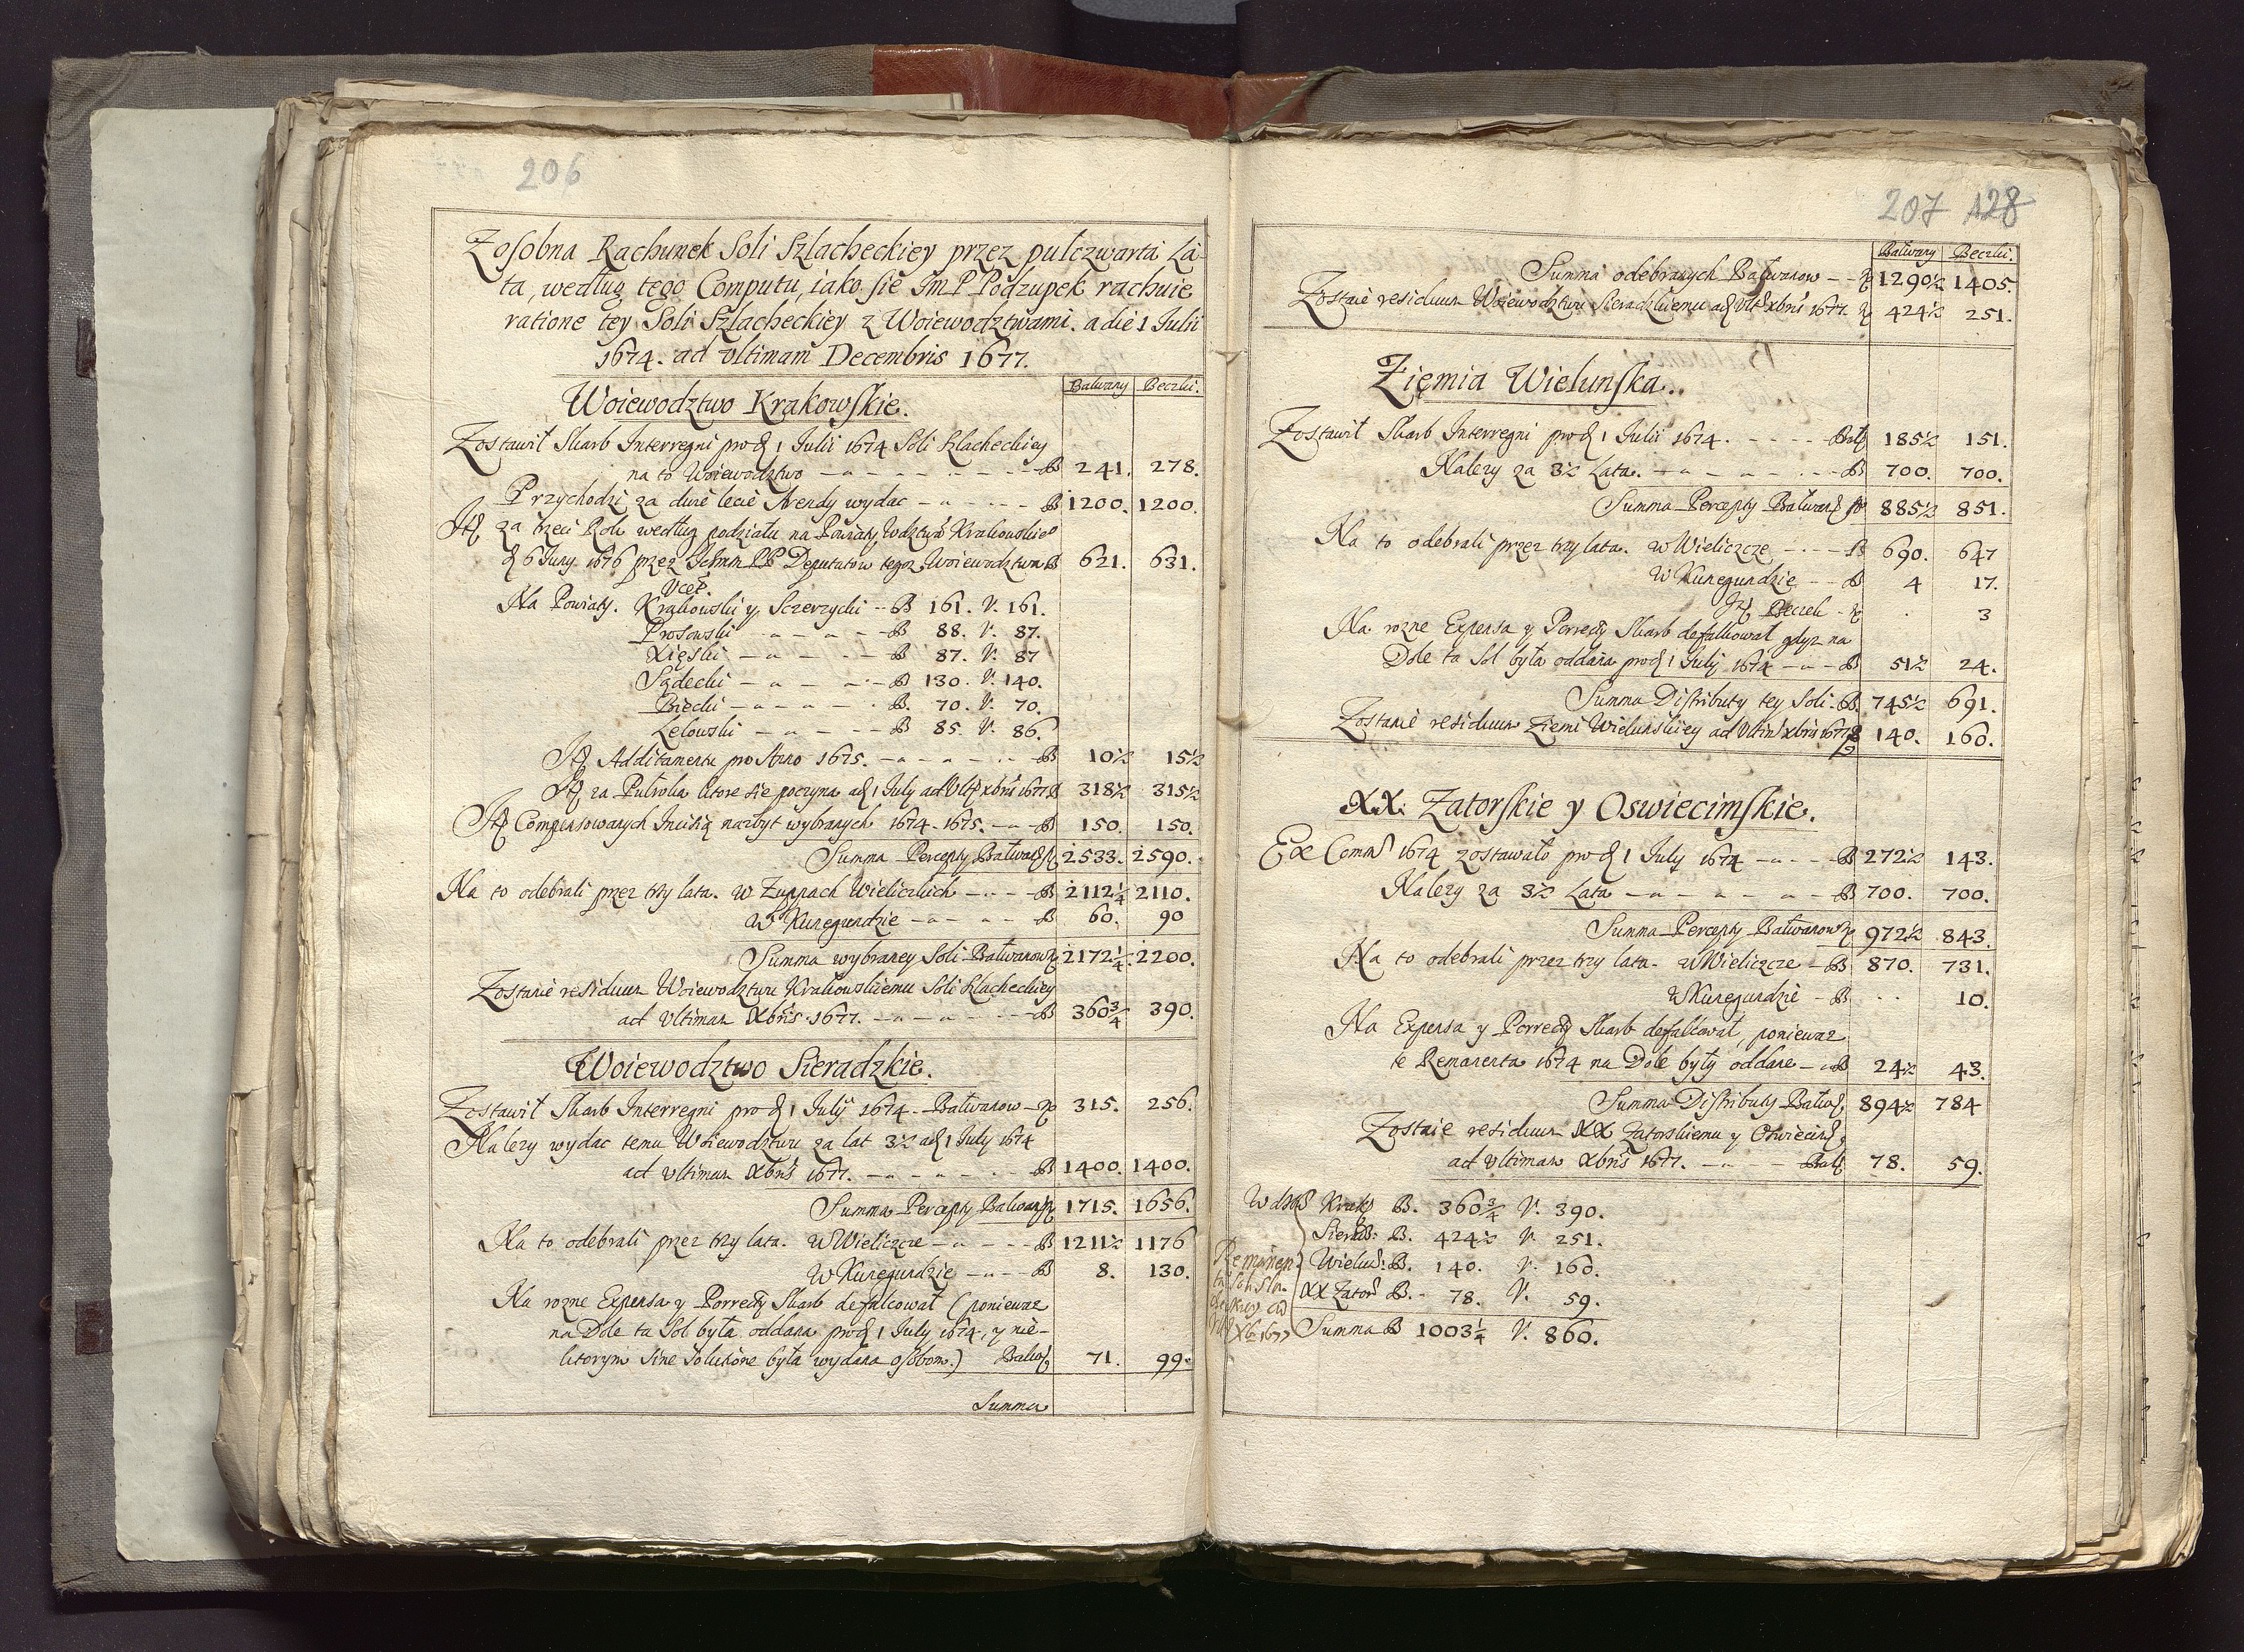 206
Zosobna Rachunek Soli Szlacheckiey przez pułczwarta La-
ta, według tego Computu, iako sie ImP Podzupek rachuie
ratione tey Soli Szlacheckiey z Woiewodztwami. a die 1 Julii
1674. ad Vltimam Decembris 1677.
Bałwany Beczki.
Woiewodztwo Krakowskie.
Zostawił Skarb Interregni pro 1 Julii 1674 Soli Szlacheckiey
na to Woiewodztwo - - - B 241. 278.
Przychodzi za dwie lecie Arendy wydac - - - B 1200. 1200.
It za trzeci Rok według podziału na Powiaty Wdztwa Krakowskie
6 Juny 1676 przez PP Deputatow tegoz Woiewodztwa B 621. 631.
Vcet.
Na Powiaty. Krakowski y Sczerzycki - - B 161. V. 161.
Prosowski - - - B 88. V. 87.
Xięski - - - B 87. V. 87
Sądecki - - - B 130. V. 140.
Biecki - - - B. 70. V. 70.
Lelowski - - - B 85. V. 86.
It Additamentu pro Anno 1675. - - - B 10½ 15½
It za Pułroka ktore sie poczyna a 1 July ad Vlt xbris 1677 B 318½ 315½
It Compensowanych nazbyt wybranych 1674. 1675. - - B 150. 150.
Summa Percepty Bałwa 2533. 2590.
Na to odebrali przez trzy lata. w Zuppach Wielickich - - - B 2112¼ 2110.
w Kunegundzie - - - B 60. 90
Summa wybraney Soli Bałwanow 2172¼. 2200.
Zostanie residuum Woiewodztwu Krakowskiemu Soli Szlacheckiey
ad Vltimam Xbris 1677. - - - B 360¾ 390.
Woiewodztwo Sieradzkie.
Zostawił Skarb Interregni pro 1 July 1674. Bałwanow 315. 256.
Nalezy wydac temu Woiewodztwu za lat 3½ a 1 July 1674
ad Vltimam Xbris 1677. - - - B 1400. 1400.
Summa Percepty Bałwan 1715. 1656.
Na to odebrali przez trzy lata. w Wieliczce - - - B 1211½ 1176
w Kunegundzie - - - B 8. 130.
Na rozne Expensa y Porrecty Skarb defalcował (poniewaz
na Dole ta Sol była oddana pro 1 July 1674, y nie-
ktorym sine Solutione była wydana osobom.) Bałwa 71. 99.
Summa
207 128
Bałwany Beczki.
Summa odebranych Bałwanow - - 1290½ 1405.
Zostaie residuum Woiewodztwu Sieradzkiemu ad Vlt xbris 1677. 424½ 251.
Ziemia Wielunska.
Zostawił Skarb Interregni pro 1 Julii 1674. - - - Bał 185½ 151.
Nalezy za 3½ Lata. - - - B 700. 700.
Summa Percepty Bałwan 885½ 851.
Na to odebrali przez trzy lata. w Wieliczcze - - - B 690. 647
W Kunegundzie - - B 4 17.
It Beczek - . 3
Na rozne Expensa y Porrecty Skarb defalkował gdyz na
Dole ta Sol była oddana pro 1 July 1674 - - B 51½ 24.
Summa Distributy tey Soli - B 745½ 691.
Zostanie residuum Ziemi Wielunskiey ad Vltim xbris 1677 140. 160.
XX: Zatorskie y Oswiecimskie.
Ex Comm 1674 zostawało pro 1 July 1674 - - - B 272½ 143.
Nalezy za 3½ Lata - - - B 700. 700.
Summa Percepty Bałwanow 972½ 843.
Na to odebrali przez trzy lata. w Wieliczcze - B 870. 731.
W Kunegundzie - B . . 10.
Na Expensa y Porrecty Skarb defalcował, poniewaz
te Remanenta 1674 na Dole były oddane - - B 24½ 43.
Summa Distributy Bałwa 894½ 784
Zostaie residuum XX Zatorskiemu y Oswiecim
ad Vltimam Xbris 1677. - - - Bał 78. 59.
Wdztwo Krak B. 360¾ V. 390.
Sierad: B. 424½ V. 251.
Wielun: B. 140. V. 160.
XX Zator B. - 78. V. 59.
Summa B 1003¼ V. 860.
Remanen-
ta Soli Szla-
Xb 1677